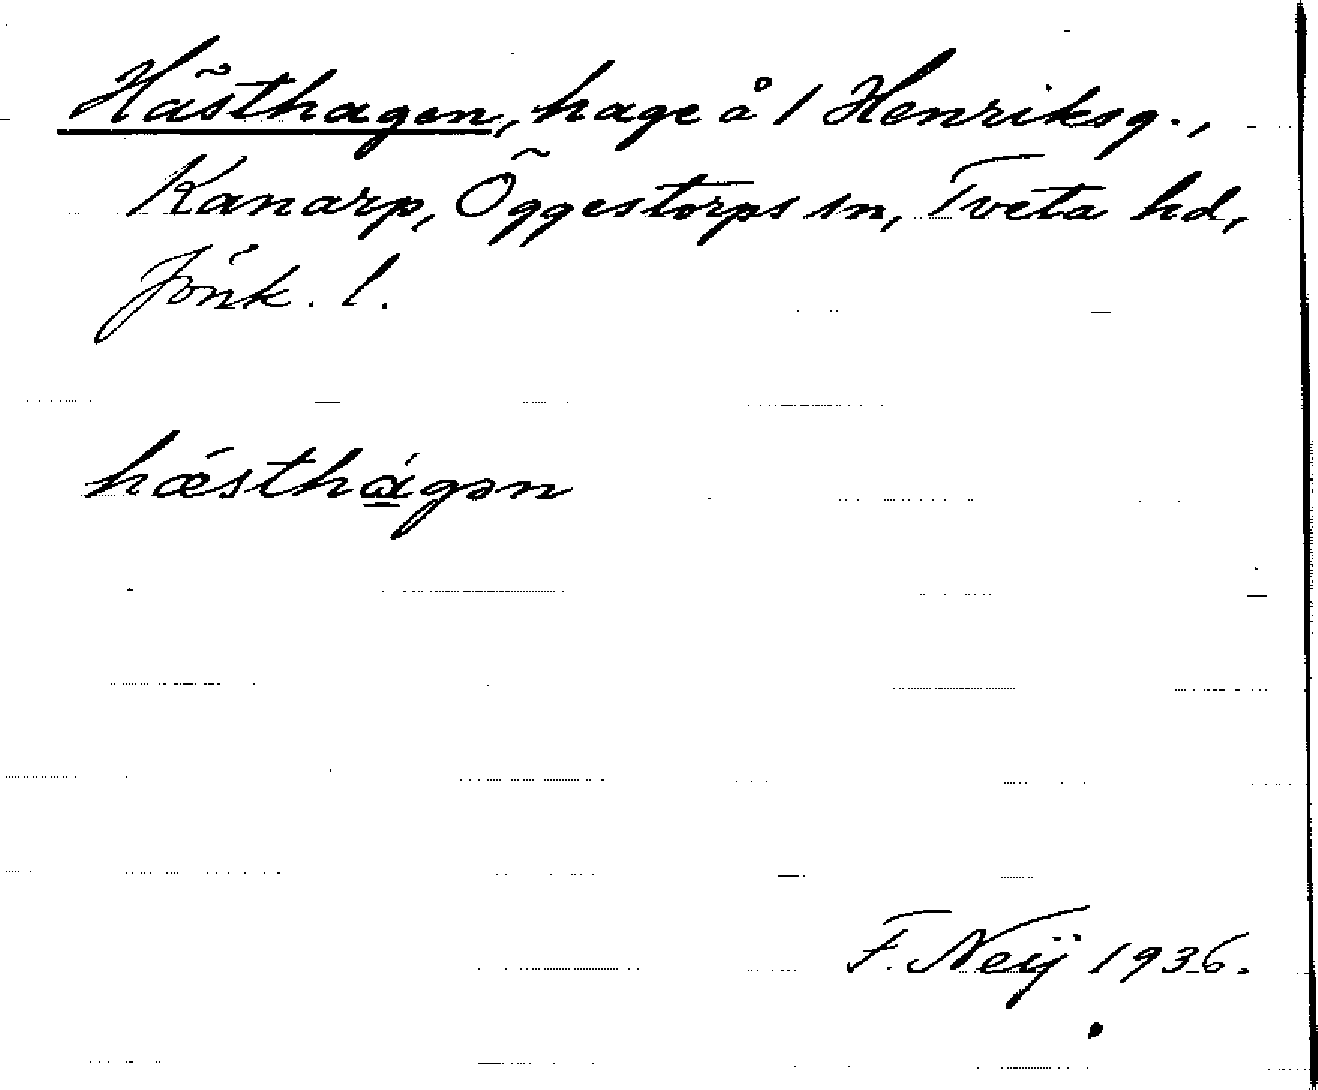 Hästhagen, hage å 1 Henriksg.,
Kanarp, Öggestorps sn, Tveta hd,
Jönk. l.
hǽsthá̱gən
F. Neij 1936.